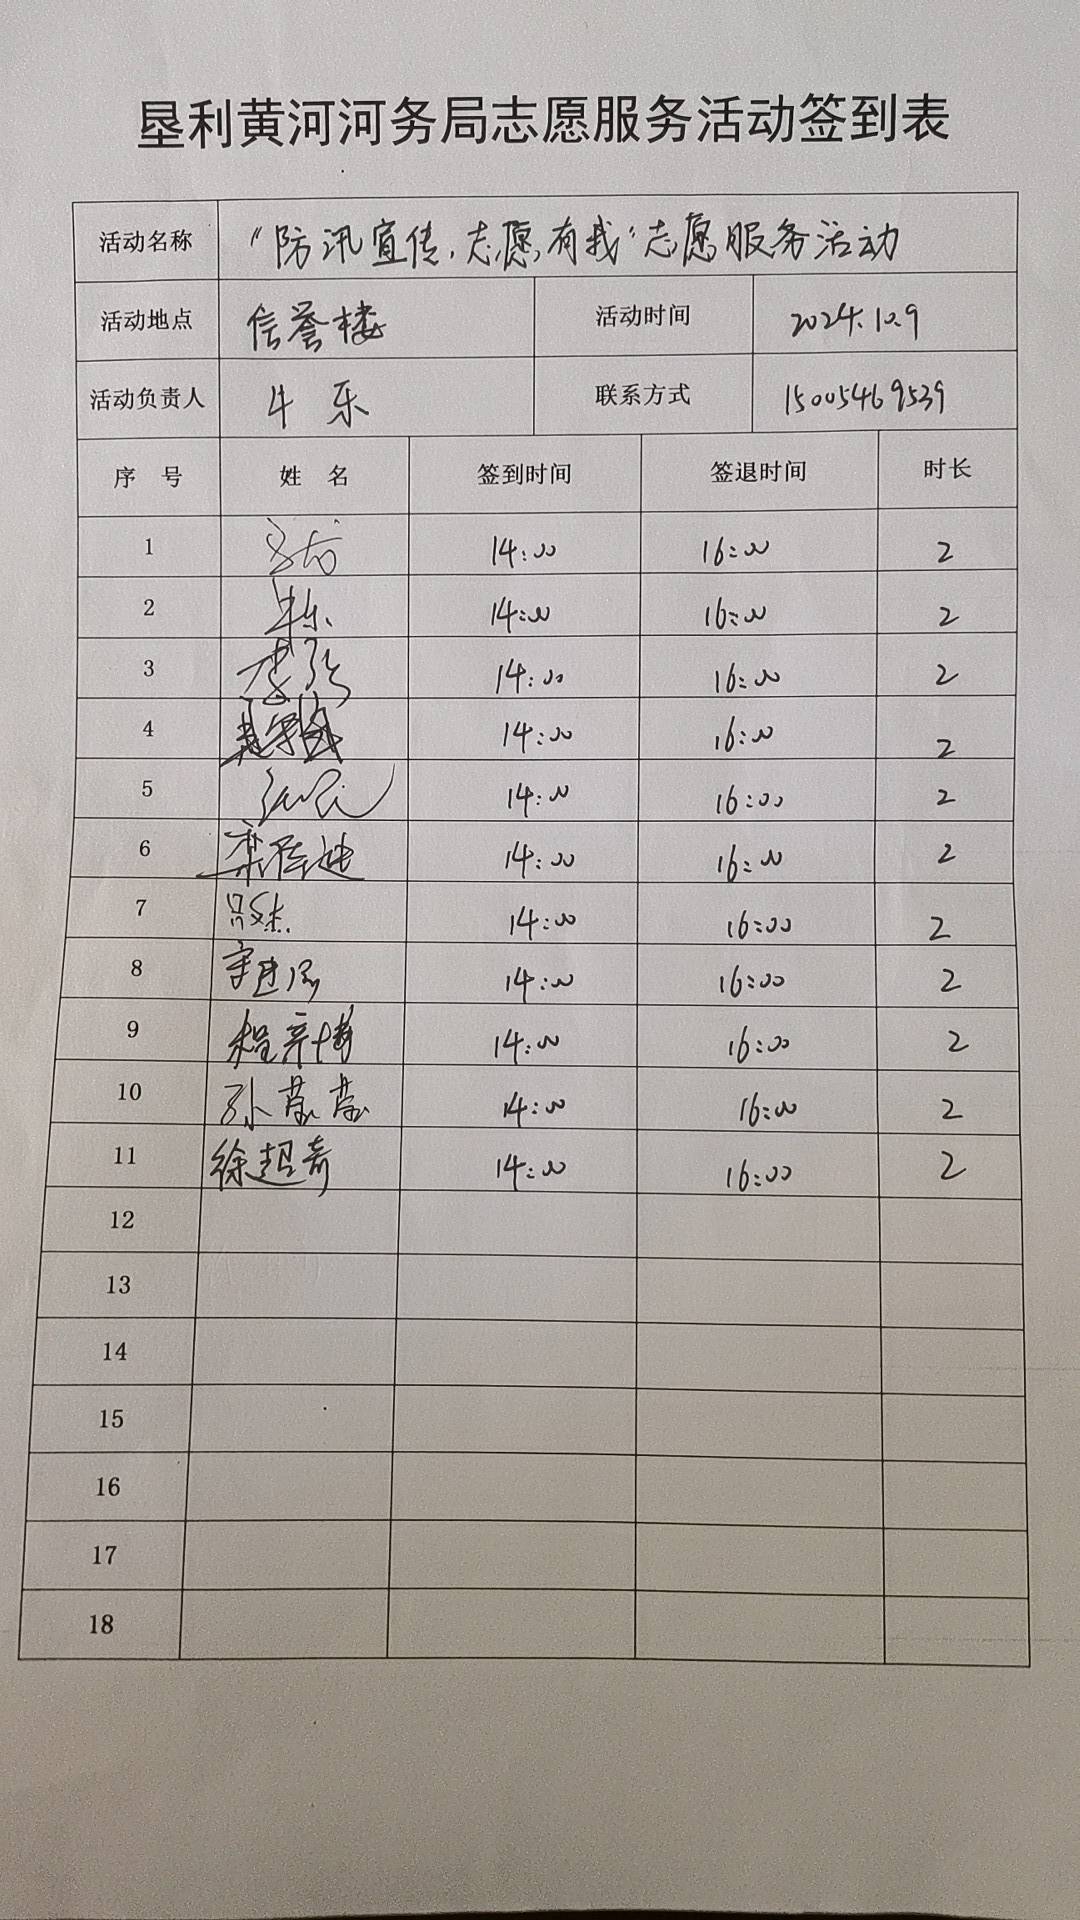 垦利黄河河务局志愿服务活动签到表
活动名称 “防汛宣传，志愿有我”志愿服务活动
活动地点 信誉楼 活动时间 2024.10.9
活动负责人 牛乐 联系方式 15005469539
序号 姓名 签到时间 签退时间 时长
1 14:00 16:00 2
2 牛乐 14:00 16:00 2
3 14:00 16:00 2
4 14:00 16:00 2
5 14:00 16:00 2
6 14:00 16:00 2
7 14:00 16:00 2
8 14:00 16:00 2
9 14:00 16:00 2
10 14:00 16:00 2
11 徐超奇 14:00 16:00 2
12
13
14
15
16
17
18